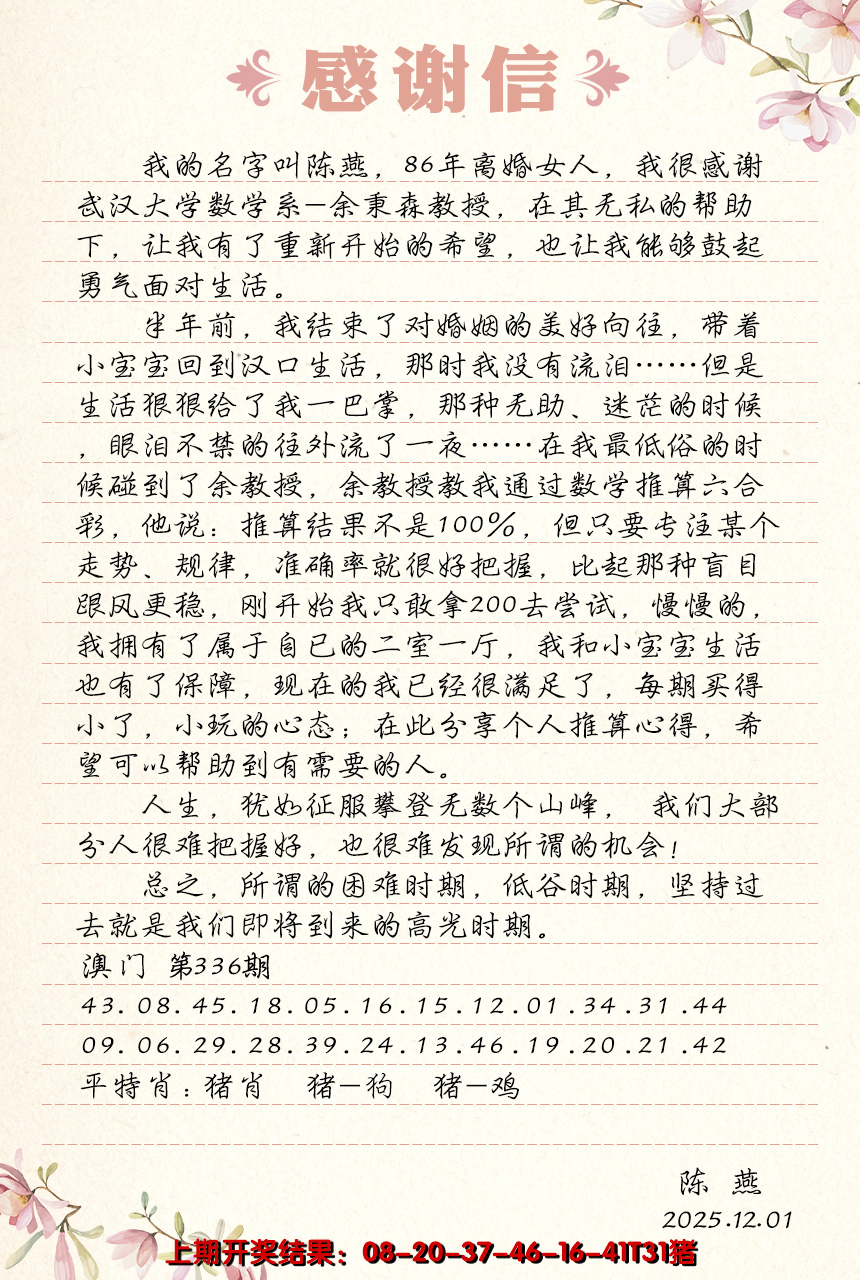 感谢信
我的名字叫陈燕，86年离婚女人，我很感谢
武汉大学数学系—余秉森教授，在其无私的帮助
下，让我有了重新开始的希望，也让我能够鼓起
勇气面对生活。
半年前，我结束了对婚姻的美好向往，带着
小宝宝回到汉口生活，那时我没有流泪……但是
生活狠狠给了我一巴掌，那种无助、迷茫的时候
，眼泪不禁的往外流了一夜……在我最低俗的时
候碰到了余教授，余教授教我通过数学推算六合
彩，他说：推算结果不是100%，但只要专注某个
走势、规律，准确率就很好把握，比起那种盲目
跟风更稳，刚开始我只敢拿200去尝试，慢慢的，
我拥有了属于自已的二室一厅，我和小宝宝生活
也有了保障，现在的我已经很满足了，每期买得
小了，小玩的心态；在此分享个人推算心得，希
望可以帮助到有需要的人。
人生，犹如征服攀登无数个山峰， 我们大部
分人很难把握好，也很难发现所谓的机会！
总之，所谓的困难时期，低谷时期，坚持过
去就是我们即将到来的高光时期。
澳门 第336期
43.08.45.18.05.16.15.12.01.34.31.44
09.06.29.28.39.24.13.46.19.20.21.42
平特肖：猪肖 猪—狗 猪—鸡
陈 燕
2025.12.01
上期开奖结果：08-20-37-46-16-41T31猪